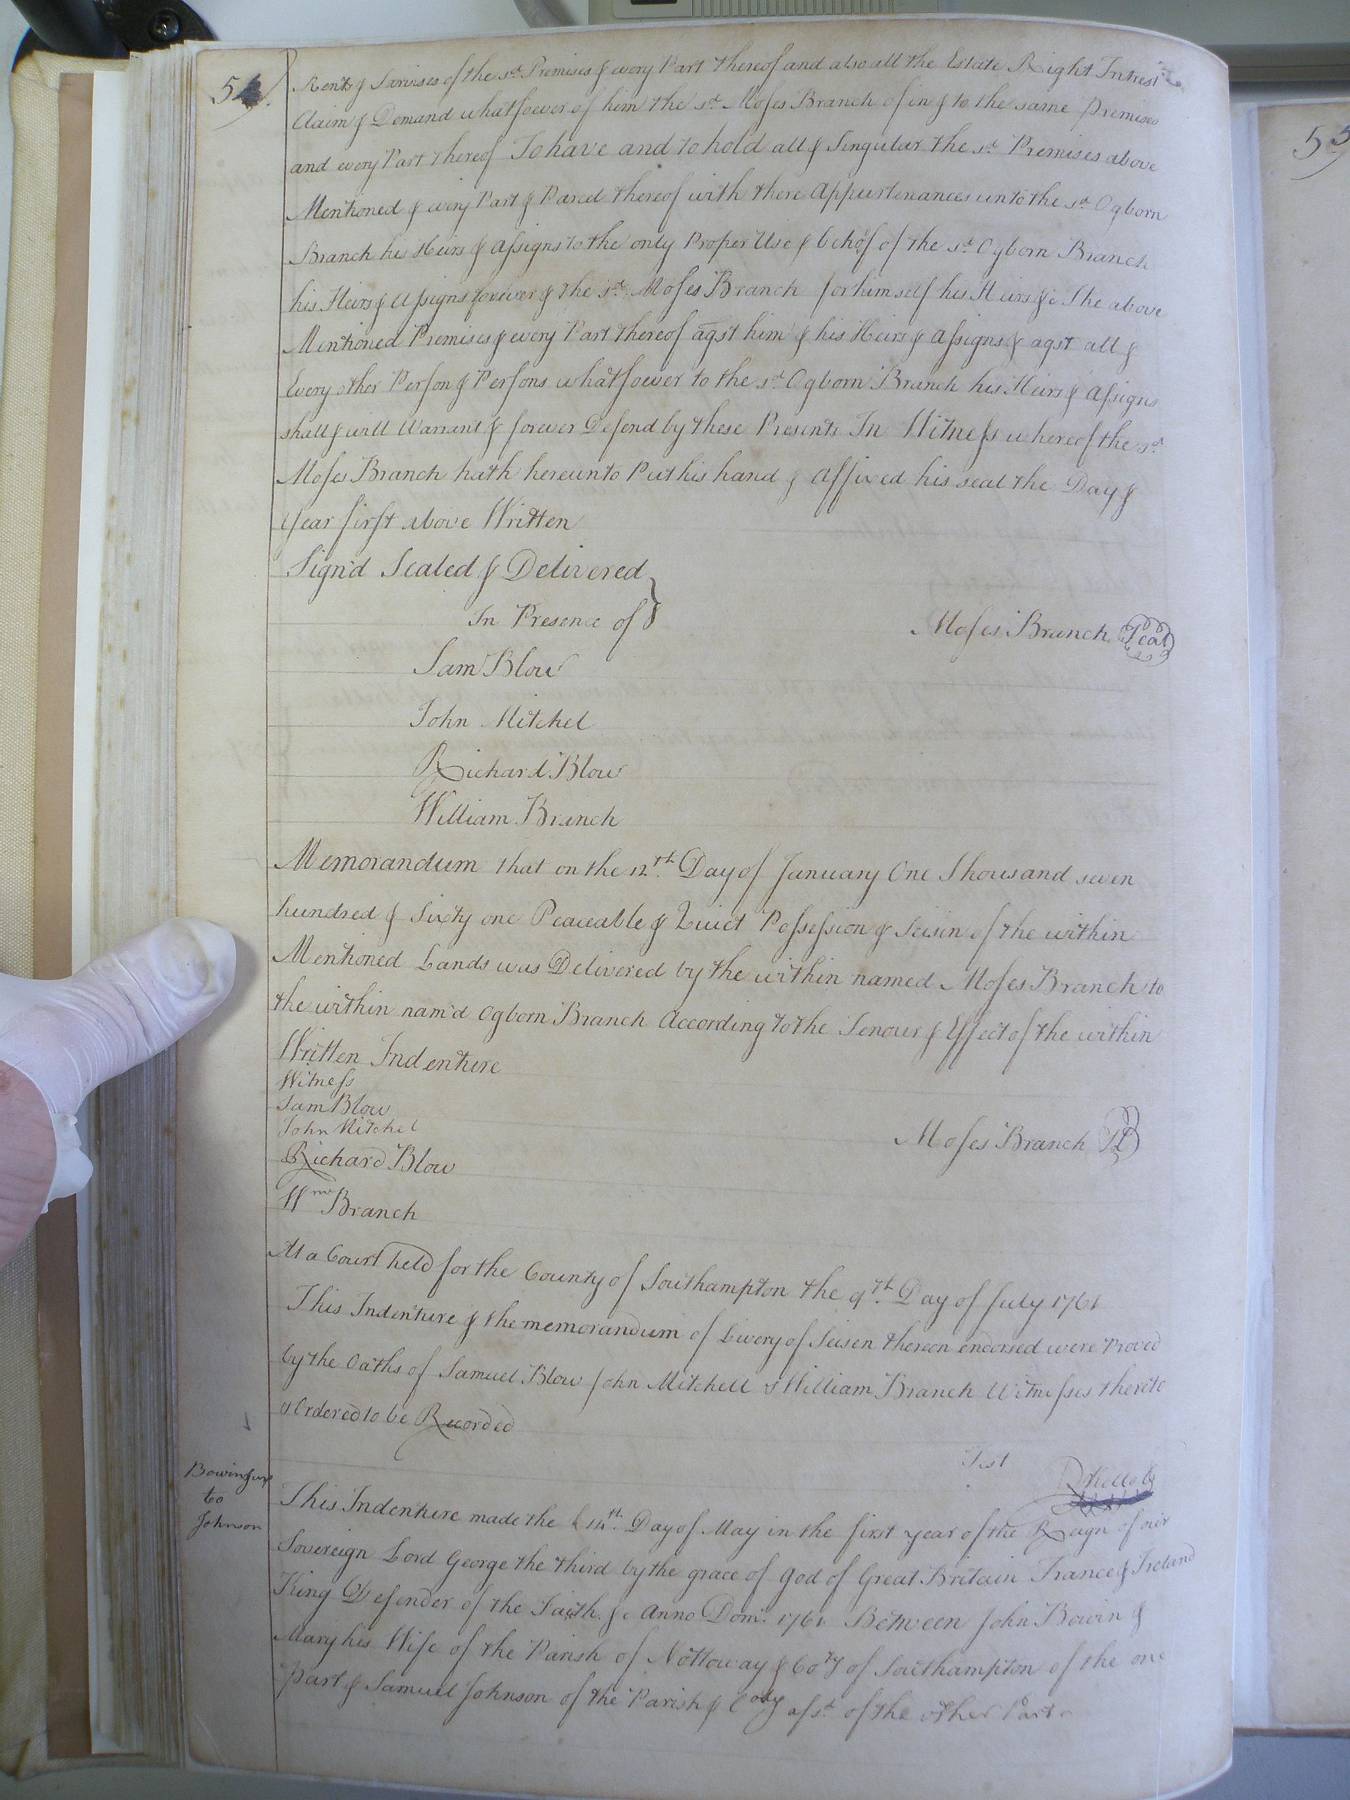 54.
Rents & Servises of the sd. Premises & every Part thereof and also all the Estate Right Intrest
Claim & Demand whatsoever of him the sd. Moses Branch of in & to the same premises
and every Part thereof To have and to hold all & Singular the sd. Premises above
Mentioned & every Part & Parcel thereof with there Appurtenances unto the sd. Ogborn
Branch his Heirs & Assigns to the only Proper Use & behoof of the sd. Ogborn Branch
his Heirs & Assigns forever & the sd. Moses Branch for himself his Heirs &c The above
Mentioned Premises & every Part thereof agst him & his Heirs & Assigns & agst all &
Every other Person & Persons whatsoever to the sd. Ogborn Branch his Heirs & Assigns
shall & will Warrant & forever Defend by these Presents In Witness whereof the sd.
Moses Branch hath hereunto Put his hand & Affixed his seal the Day &
Year first above Written
Sign'd Sealed & Delivered
In Presence of
Moses Branch Seal
Sam Blow
John Mitchel
Richard Blow
William Branch
Memorandum that on the 12th. Day of January One Thousand seven
hundred & Sixty one Peaceable & Quiet Possession & Seisin of the within
Mentioned Lands was Delivered by the within named Moses Branch to
the within nam'd Ogborn Branch According to the Tenour & Effect of the within
Written Indenture
Witness
Sam Blow
John Mitchel
Moses Branch
Richard Blow
Wm Branch
At a Court held for the County of Southampton the 9th. Day of July 1761
This Indenture & the memorandum of Livery of Seisen thereon endorsed were Proved
by the Oaths of Samuel Blow John Mitchell & William Branch Witnesses thereto
& Ordered to be Recorded
Test
Bowin & ux
to
Johnson
This Indenture made the 14th. Day of May in the first year of the Reagn of our
Sovereign Lord George the third by the grace of god of Great Britain France & Ireland
King Defender of the Faith &c Anno Dom: 1761 Between John Bowin &
Mary his Wife of the Parish of Nottoway & Coty of Southampton of the one
Part & Samuel Johnson of the Parish & Coty afsd. of the other Part
55